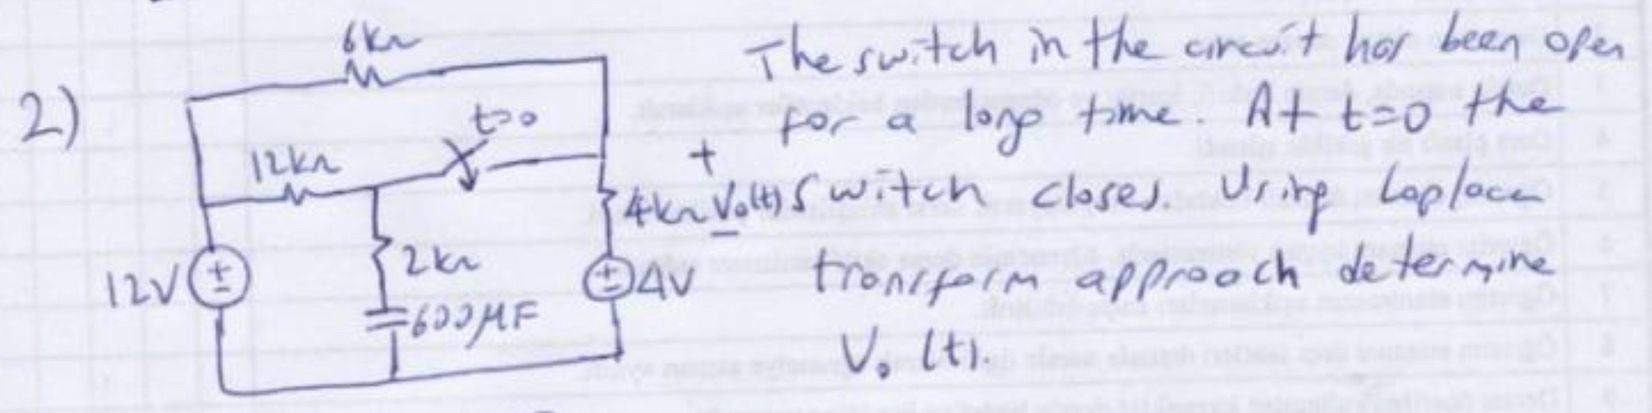 2)
6kΩ
12kΩ
t=0
2kΩ
600μF
12V
+
4kΩ
Vo(t)
-
4V
The switch in the circuit has been open
for a long time. At t=0 the
switch closes. Using Laplace
transform approach determine
Vo(t).